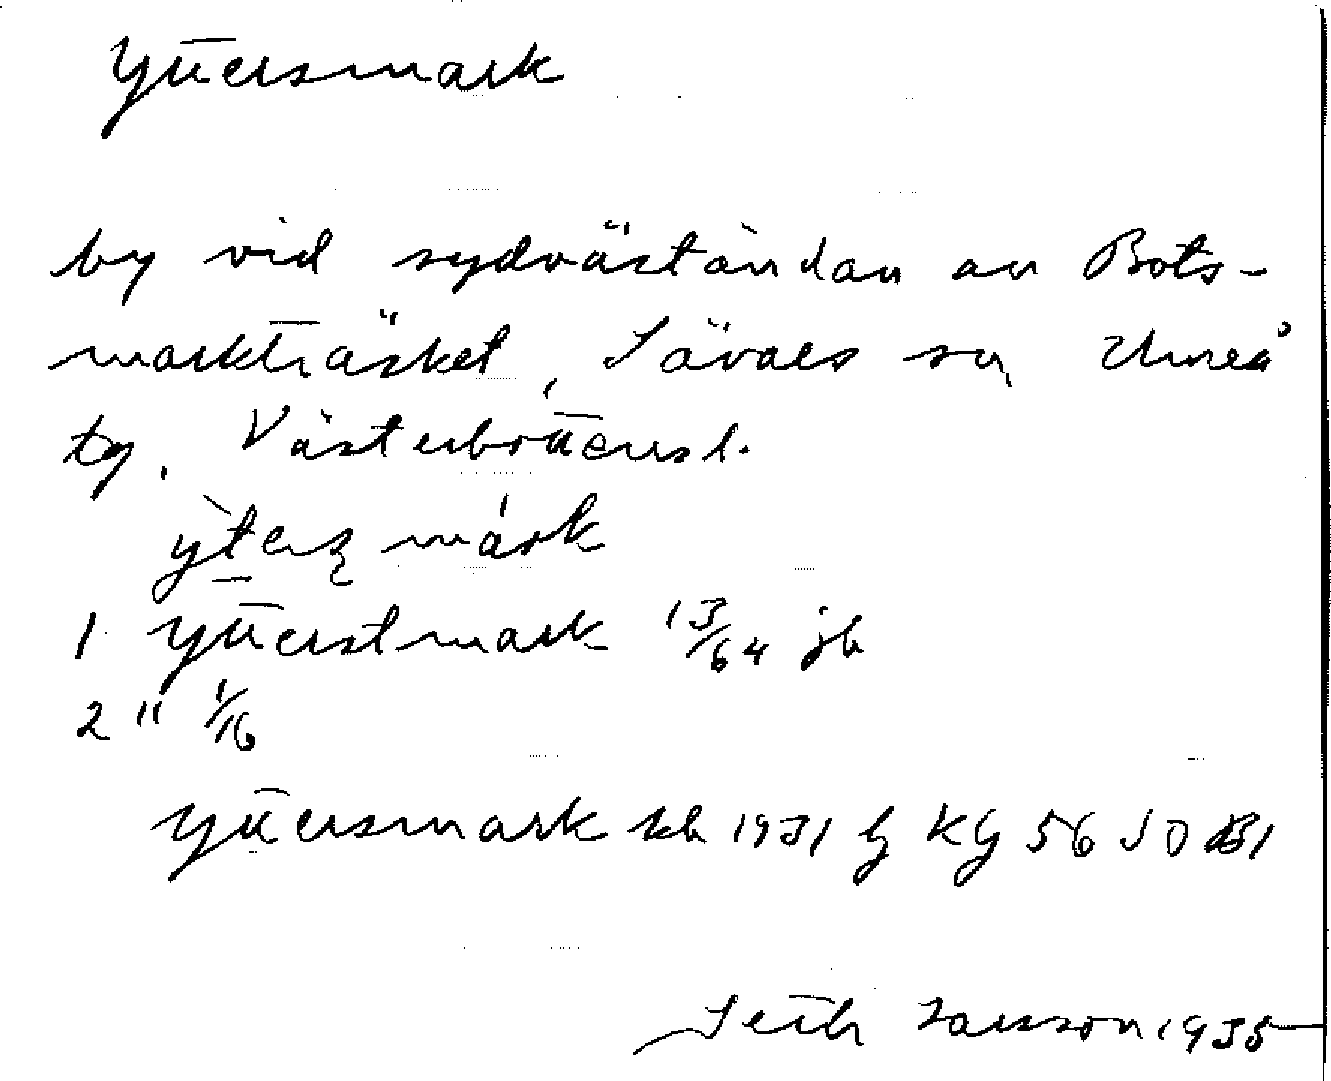 Yttersmark
by vid sydväständan av Bots-
markträsket, Sävars sn, Umeå
tg. Västerbottensl.
1 Ytterstmark 13/64 jb
2 " 1/16
Yttersmark kb 1931 bl KG 56 SO Bl
Seth Jansson 1935